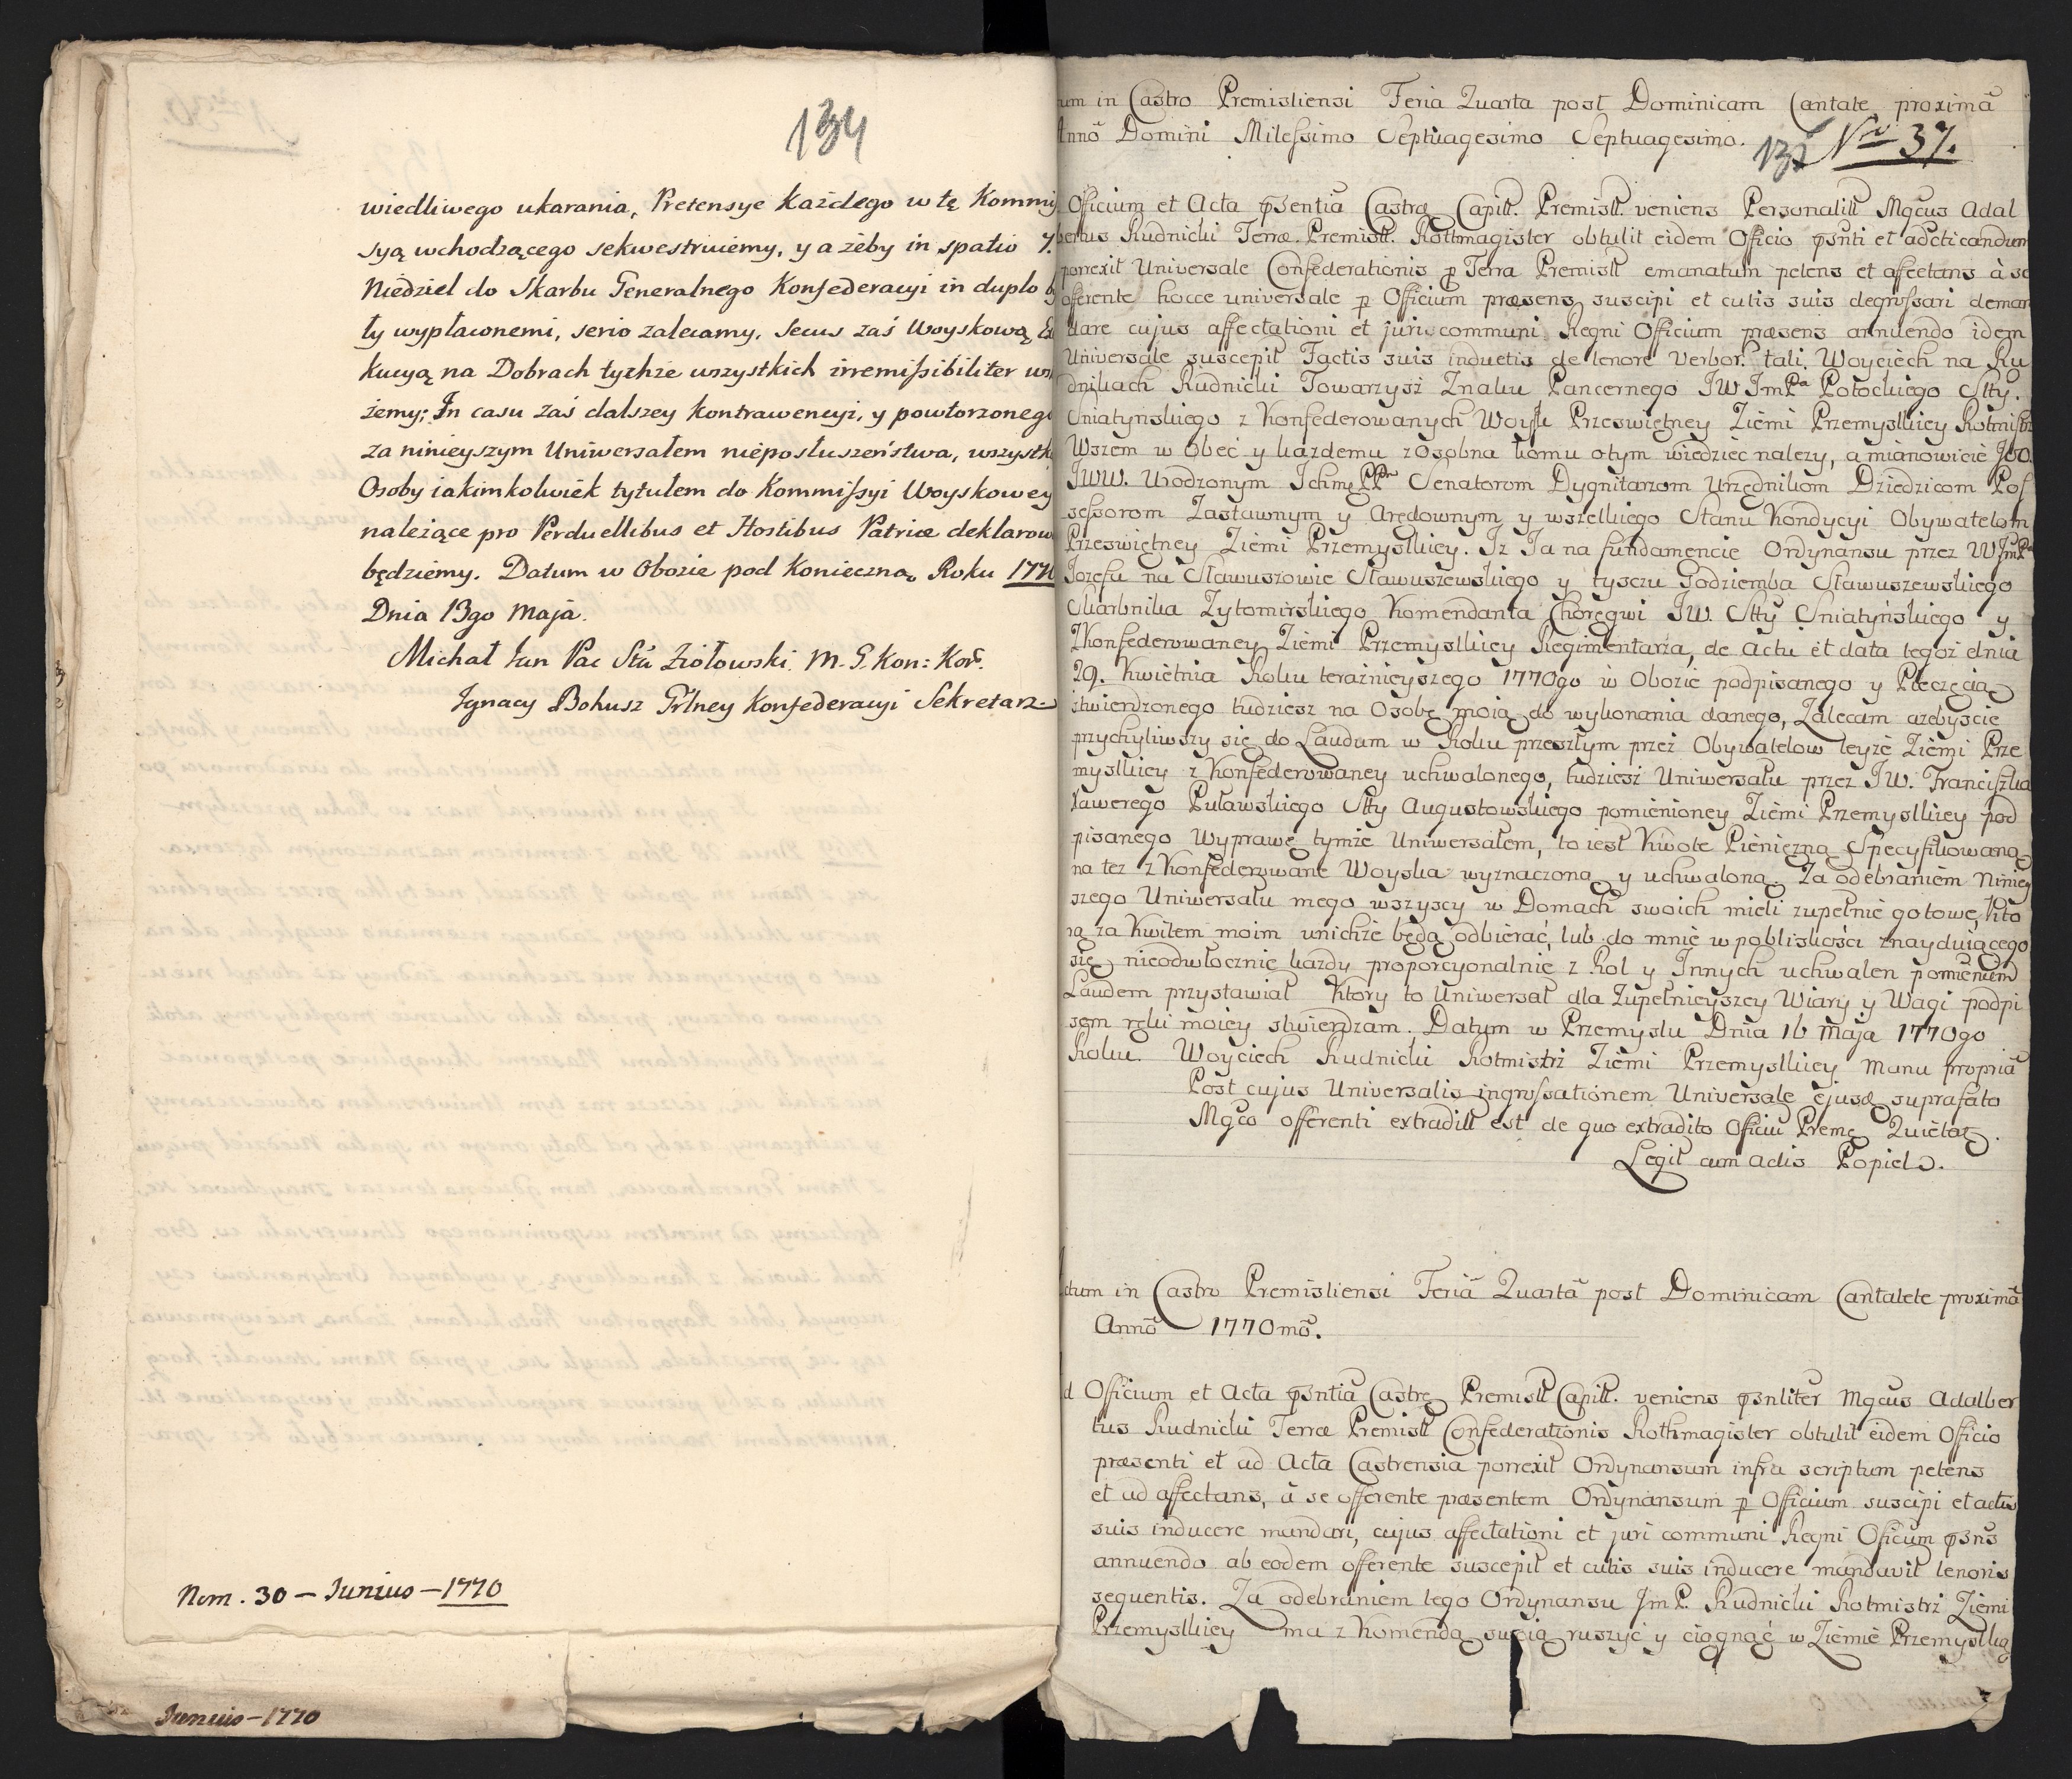 134
wiedliwego ukarania, Pretensye każdego w tę Kommi
syą wchodzącego sekwestruiemy, y a żeby in spatio 7.
Niedziel do Skarbu Generalnego Konfederacyi in duplo
ły wypłaconemi, serio zalecamy. Secus zaś Woyskową
kucyą na Dobrach tychże wszystkich irremissibiliter
żemy; In casu zaś dalszey kontrawencyi, y powtorzoneg
za ninieyszym Uniwersałem nieposłuszeństwa, wszystk
Osoby iakimkolwiek tytułem do Kommissyi Woyskowey
należące pro Perduellibus et Hostibus Patriæ deklarow
będziemy. Datum w Obozie pod Konieczną Roku 1770
Dnia 13go Maja.
Michał Jan Pac Sta Ziołowski. M. G. Kon: Kor.
Ignacy Bohusz Grlney Konfederacyi Sekretarz
Num. 30 — Junius — 1770
Junius — 1770
um in Castro Premisliensi Feria Quarta post Dominicam Cantate proximâ
Annô Domini Milessimo Septuagesimo Septuagesimo.
Nro 37.
Officium et Acta præsentia Castræ Capitt. Premisll. veniens Personalitt Mgcus Adal
bertus Rudnicki Terræ Premisll. Rothmagister obtulit eidem Officio et
porrexit Universale Confederationis p Terra Premisll emanatum petens et affectans à se
offerente hocce universale p Officium præsens suscipi et cutis suis degrossari deman
dare cujus affectationi et juri communi Regni Officium præsens annuendo idem
Universale suscepit Factis suis inductis de tenore verbor. tali. Woyciech na Ru
dnikach Rudnicki Towarzysz Znaku Pancernego JW JmPa Potockiego Stty.
Sniatyńskiego z Konfederowanych Woysk Przeswiętney Ziemi Przemyslkiey Rotmistrz
Wszem w obec y każdemu zosobna komu otym wiedzieć nalezy, a mianowicie
JWW. Urodzonym Ichmę PPm Senatorom Dygnitarzom Urzędnikom Dziedzicom Pos
sessorom Zastawnym y Arędownym y wszelkiego Stanu Kondycyi Obywatelom
Przeswiętney Ziemi Przemyslkiey. Iż Ja na fundamencie Ordynansu przez WJmPa
Jozefa na Sławuszowie Sławuszewskiego y tyszu Godziemba Sławuszewskiego
Skarbnika Zytomirskiego Komendanta Choręgwi JW. Stty Sniatyńskiego y
Zkonfederowaney Ziemi Przemyslkiey Regimentarza, de actu et data tegoż dnia
29. Kwietnia Roku teraznieyszego 1770go w Obozie podpisanego y Pieczęcią
stwierdzonego tudziesz na Osobę moią do wykonania danego, Zalecam azebyscie
przychyliwszy się do Laudum w Roku przeszłym przez Obywatelow teyże Ziemi Prze
myslkiey z Konfederowaney uchwalonego, tudziesz Uniwersału przez JW. Franciszka
Xawerego Puławskiego Stty Augustowskiego pomienioney Ziemi Przemyslkiey pod
pisanego Wyprawę tymże Uniwersałem, to iest Kwote Pieniezną Specyfikowaną
na tez z Konfederowane Woyska wyznaczoną y uchwaloną. Za odebraniem Niniey
szego Uniwersału mego wszyscy w Domach swoich mieli zupełnie gotowe, Kto
rą za Kwitem moim unichże będą odbierać, lub do mnie w pobliskości znayduiącego
się nieodwłocznie kazdy proporcyonalnie z Rol y Innych uchwalen pomieniem
Laudem przystawiał Ktory to Uniwersał dla Zupełnieyszey Wiary y Wagi podpi
sem ręki moiey stwierdzam. Datum w Przemyslu Dnia 16 Maja 1770go
Roku. Woyciech Rudnicki Rotmistrz Ziemi Przemyslkiey Manu propriâ
Post cujus Universalis ingrossationem Universale ejusq suprafato
Mgco offerenti extraditt est de quo extradito Officiu Preme Quietat.
Legit cum Actis Popiel.
ctum in Castro Premisliensi Feriâ Quartâ post Dominicam Cantatete proximâ
Annô 1770mô.
d Officium et Acta præsntiâ Castrę Premisll Capitt. veniens Mgcus Adalber
tus Rudnicki Terræ Premisll Confederationis Rothmagister obtulit eidem Officio
præsenti et ad Acta Castrensia porrexit Ordynansum infra scriptum petens
et ad affectans, à se offerente præsentem Ordynansum p Officium suscipi et actis
suis inducere mandari, cujus affectationi et juri communi Regni Oficium præsns
annuendo ab eodem offerente suscepit et cutis suis inducere mandavit tenoris
sequentis. Za odebraniem tego Ordynansu JmP. Rudnicki Rotmistrz Ziemi
Przemyslkiey ma z Komendą swoią ruszyć y ciągnąć w Ziemie Przemyslką